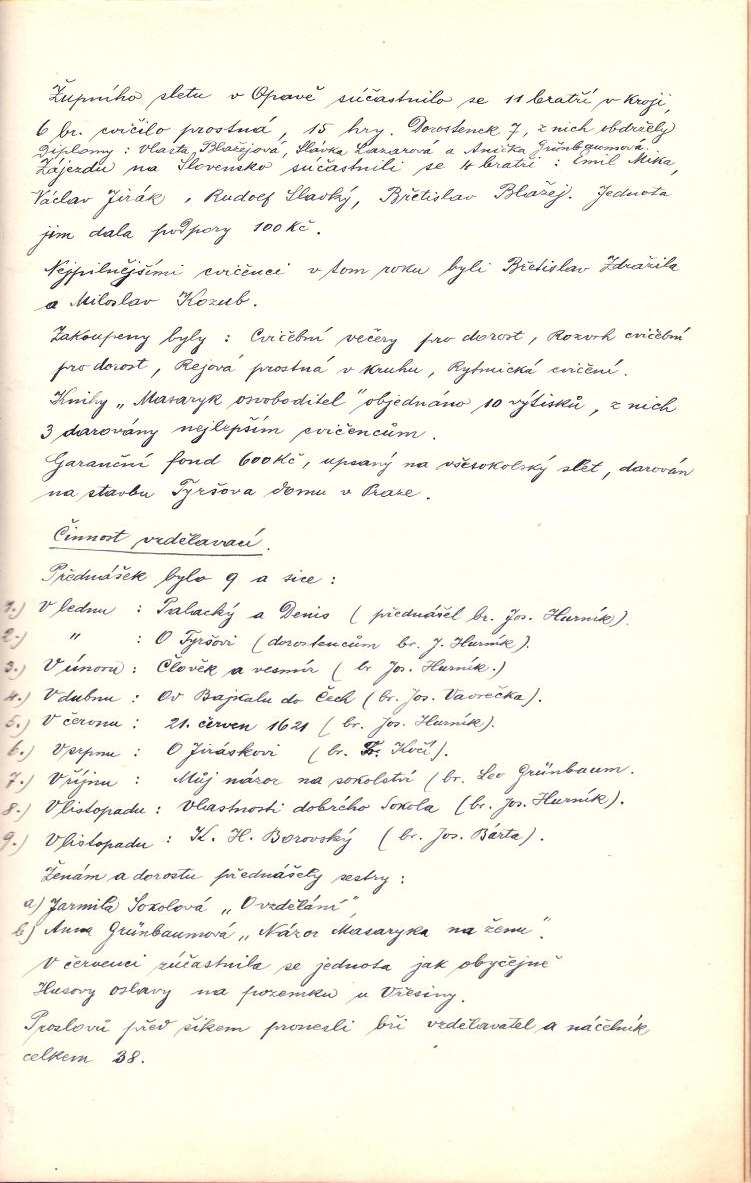 Župního sletu v Opavě súčastnilo se 11 bratří v kroji,
6 br. cvičilo prostná, 15 hry. Dorostenek 7, z nich obdržely
Diplomy: Vlasta Blažejová, Slávka Lazarová a Anička Grünbaumová.
Zájezdu na Slovensko súčastnili se 4 bratři: Emil Mika,
Václav Jirák, Rudolf Slavký, Břetislav Blažej. Jednota
jim dala podpory 100 Kč.
Nejpilnějšími cvičenci v tom roku byli Břetislav Zdražila
a Miloslav Kozub.
Zakoupeny byly: Cvičební večery pro dorost, Rozvrh cvičební
pro dorost, Rejová prostná v kruhu, Rytmická cvičení.
Knihy „Masaryk osvoboditel" objednáno 10 výtisků, z nich
3 darovány nejlepším cvičencům.
Garanční fond 600 Kč, upsaný na všesokolský slet, darován
na stavbu Tyršova domu v Praze.
Činnost vzdělavací.
Přednášek bylo 9 a sice:
1.) V lednu: Palacký a Denis (přednášel br. Jos. Hurník).
2.) " : O Tyršovi (dorostencům br. J. Hurník).
3.) V únoru: Člověk a vesmír (br Jos. Hurník.)
4.) V dubnu: Od Bajkalu do Čech (br. Jos. Vavrečka).
5.) V červnu: 21. červen 1621 (br. Jos. Hurník).
6.) V srpnu: O Jiráskovi (br. Fr. Kočí).
7.) V říjnu: Můj názor na sokolství (br. Leo Grünbaum.
8.) V listopadu: Vlastnosti dobrého Sokola (br. Jos. Hurník).
9.) V listopadu: K. H. Borovský (br. Jos. Bárta).
Ženám a dorostu přednášely sestry:
a) Jarmila Sokolová „O vzdělání"
b) Anna Grünbaumová „Názor Masaryka na ženu".
V červenci zúčastnila se jednota jak obyčejně
Husovy oslavy na pozemku u Vřesiny.
Proslovů před šikem pronesli bři vzdělavatel a náčelník
celkem 38.